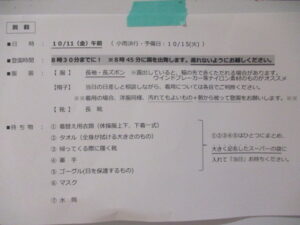 ■ 日　時　：　10/11（金）午前　（小雨決行・予備日：10/15(火)）
■登園時間　8時30分までに！　※8時45分に園を出発します。遅れないようにお越しください。
■ 服　装　：　【服　】　長袖・長ズボン
ウインドブレーカー系ナイロン素材のものがオススメ
【帽子】　当日の日差しと相談しながら、着用については各自でご用意ください。
【靴　】　長　靴
■ 持ち物　：　① 着替え用衣類（体操服上下、下着一式）
② タオル（全身が拭ける大きさのもの）
③ 帰ってくる際に履く靴
④ 軍　手
⑤ ゴーグル(目を保護するもの)
⑥ マスク
⑦ 水　筒
①②③④⑤はひとつにまとめ、
大きく記名したスーパーの袋に
入れて『当日』お持ちください。